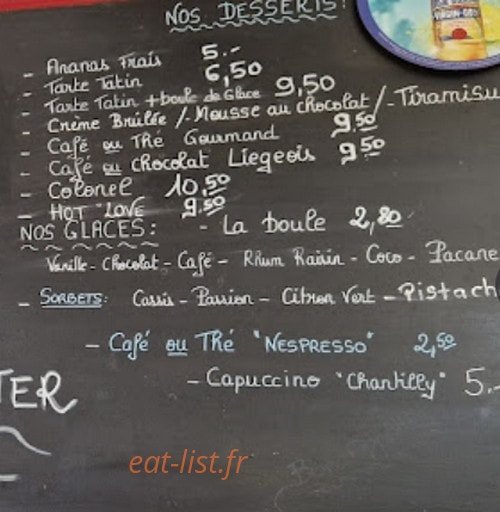 NOS DESSERTS:
- Ananas Frais 5.-
- Tarte Tatin 6,50
- Tarte Tatin + boule de Glace 9,50
- Crème Brûlée / - Mousse au chocolat / - Tiramisu
- Café ou Thé Gourmand 9.50
- Café ou chocolat Liegeois 9.50
- Colonel 10,50
- HOT "LOVE 9.50
NOS GLACES: - La boule 2,80
Vanille - Chocolat - Café - Rhum Raisin - Coco - Pacane
- SORBETS: Cassis - Passion - Citron Vert - Pistach
- Café ou Thé "NESPRESSO" 2,50
- Capuccino "Chantilly" 5.-
TER
eat-list.fr